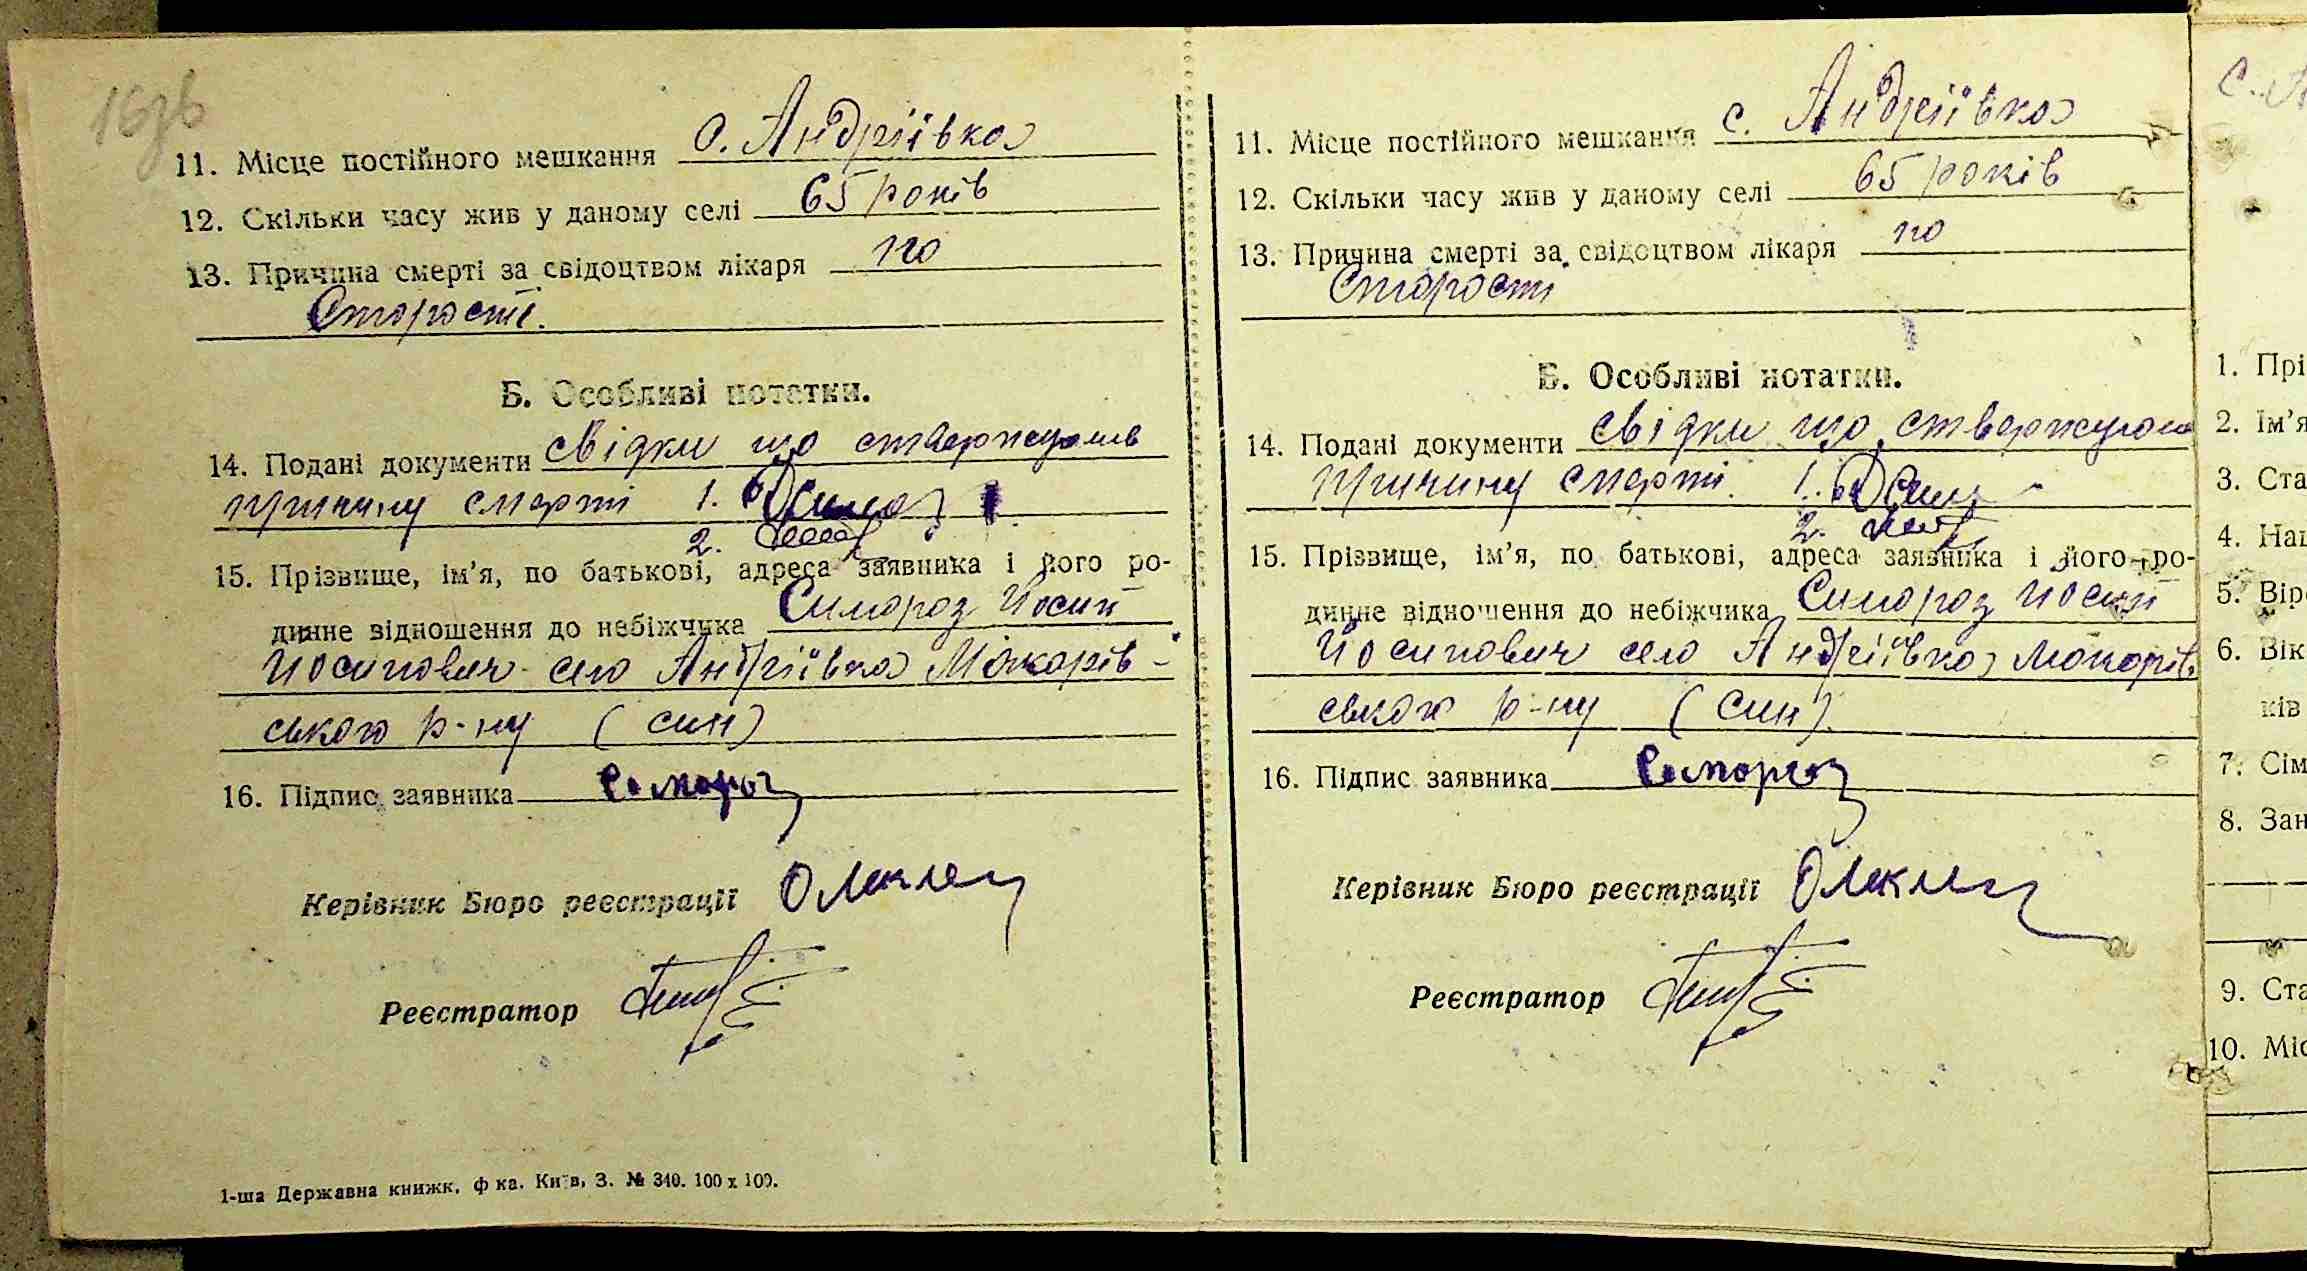 16зв
11. Місце постійного мешкання с. Андріївка
12. Скільки часу жив у даному селі 65 років
13. Причина смерті за свідоцтвом лікаря по
Старості.
Б. Особливі нотатки.
14. Подані документи свідки що ствержували
причину смерті 1.
2.
15. Прізвище, ім’я, по батькові, адреса заявника і його ро-
динне відношення до небіжчика Симороз Йосип
Йосипович село Андріївка Макарів-
ського р-ну (син)
16. Підпис заявника Симороз
Керівник Бюро реєстрації
Реєстратор
1-ша Державна книжк. ф ка. Київ, З. № 340. 100 х 100.
11. Місце постійного мешкання с. Андріївка
12. Скільки часу жив у даному селі 65 років
13. Причина смерті за свідоцтвом лікаря по
Старості
Б. Особливі нотатки.
14. Подані документи свідки що ствержували
причину смерті. 1.
2.
15. Прізвище, ім’я, по батькові, адреса заявника і його ро-
динне відношення до небіжчика Симороз Йосип
Йосипович село Андріївка Макарів
ського р-ну (син).
16. Підпис заявника Симороз
Керівник Бюро реєстрації
Реєстратор
с. А
1. Прі
2. Ім’я
3. Ста
4. Нац
5. Вір
6. Вік
ків
7. Сім
8. Зан
9. Ста
10. Міс